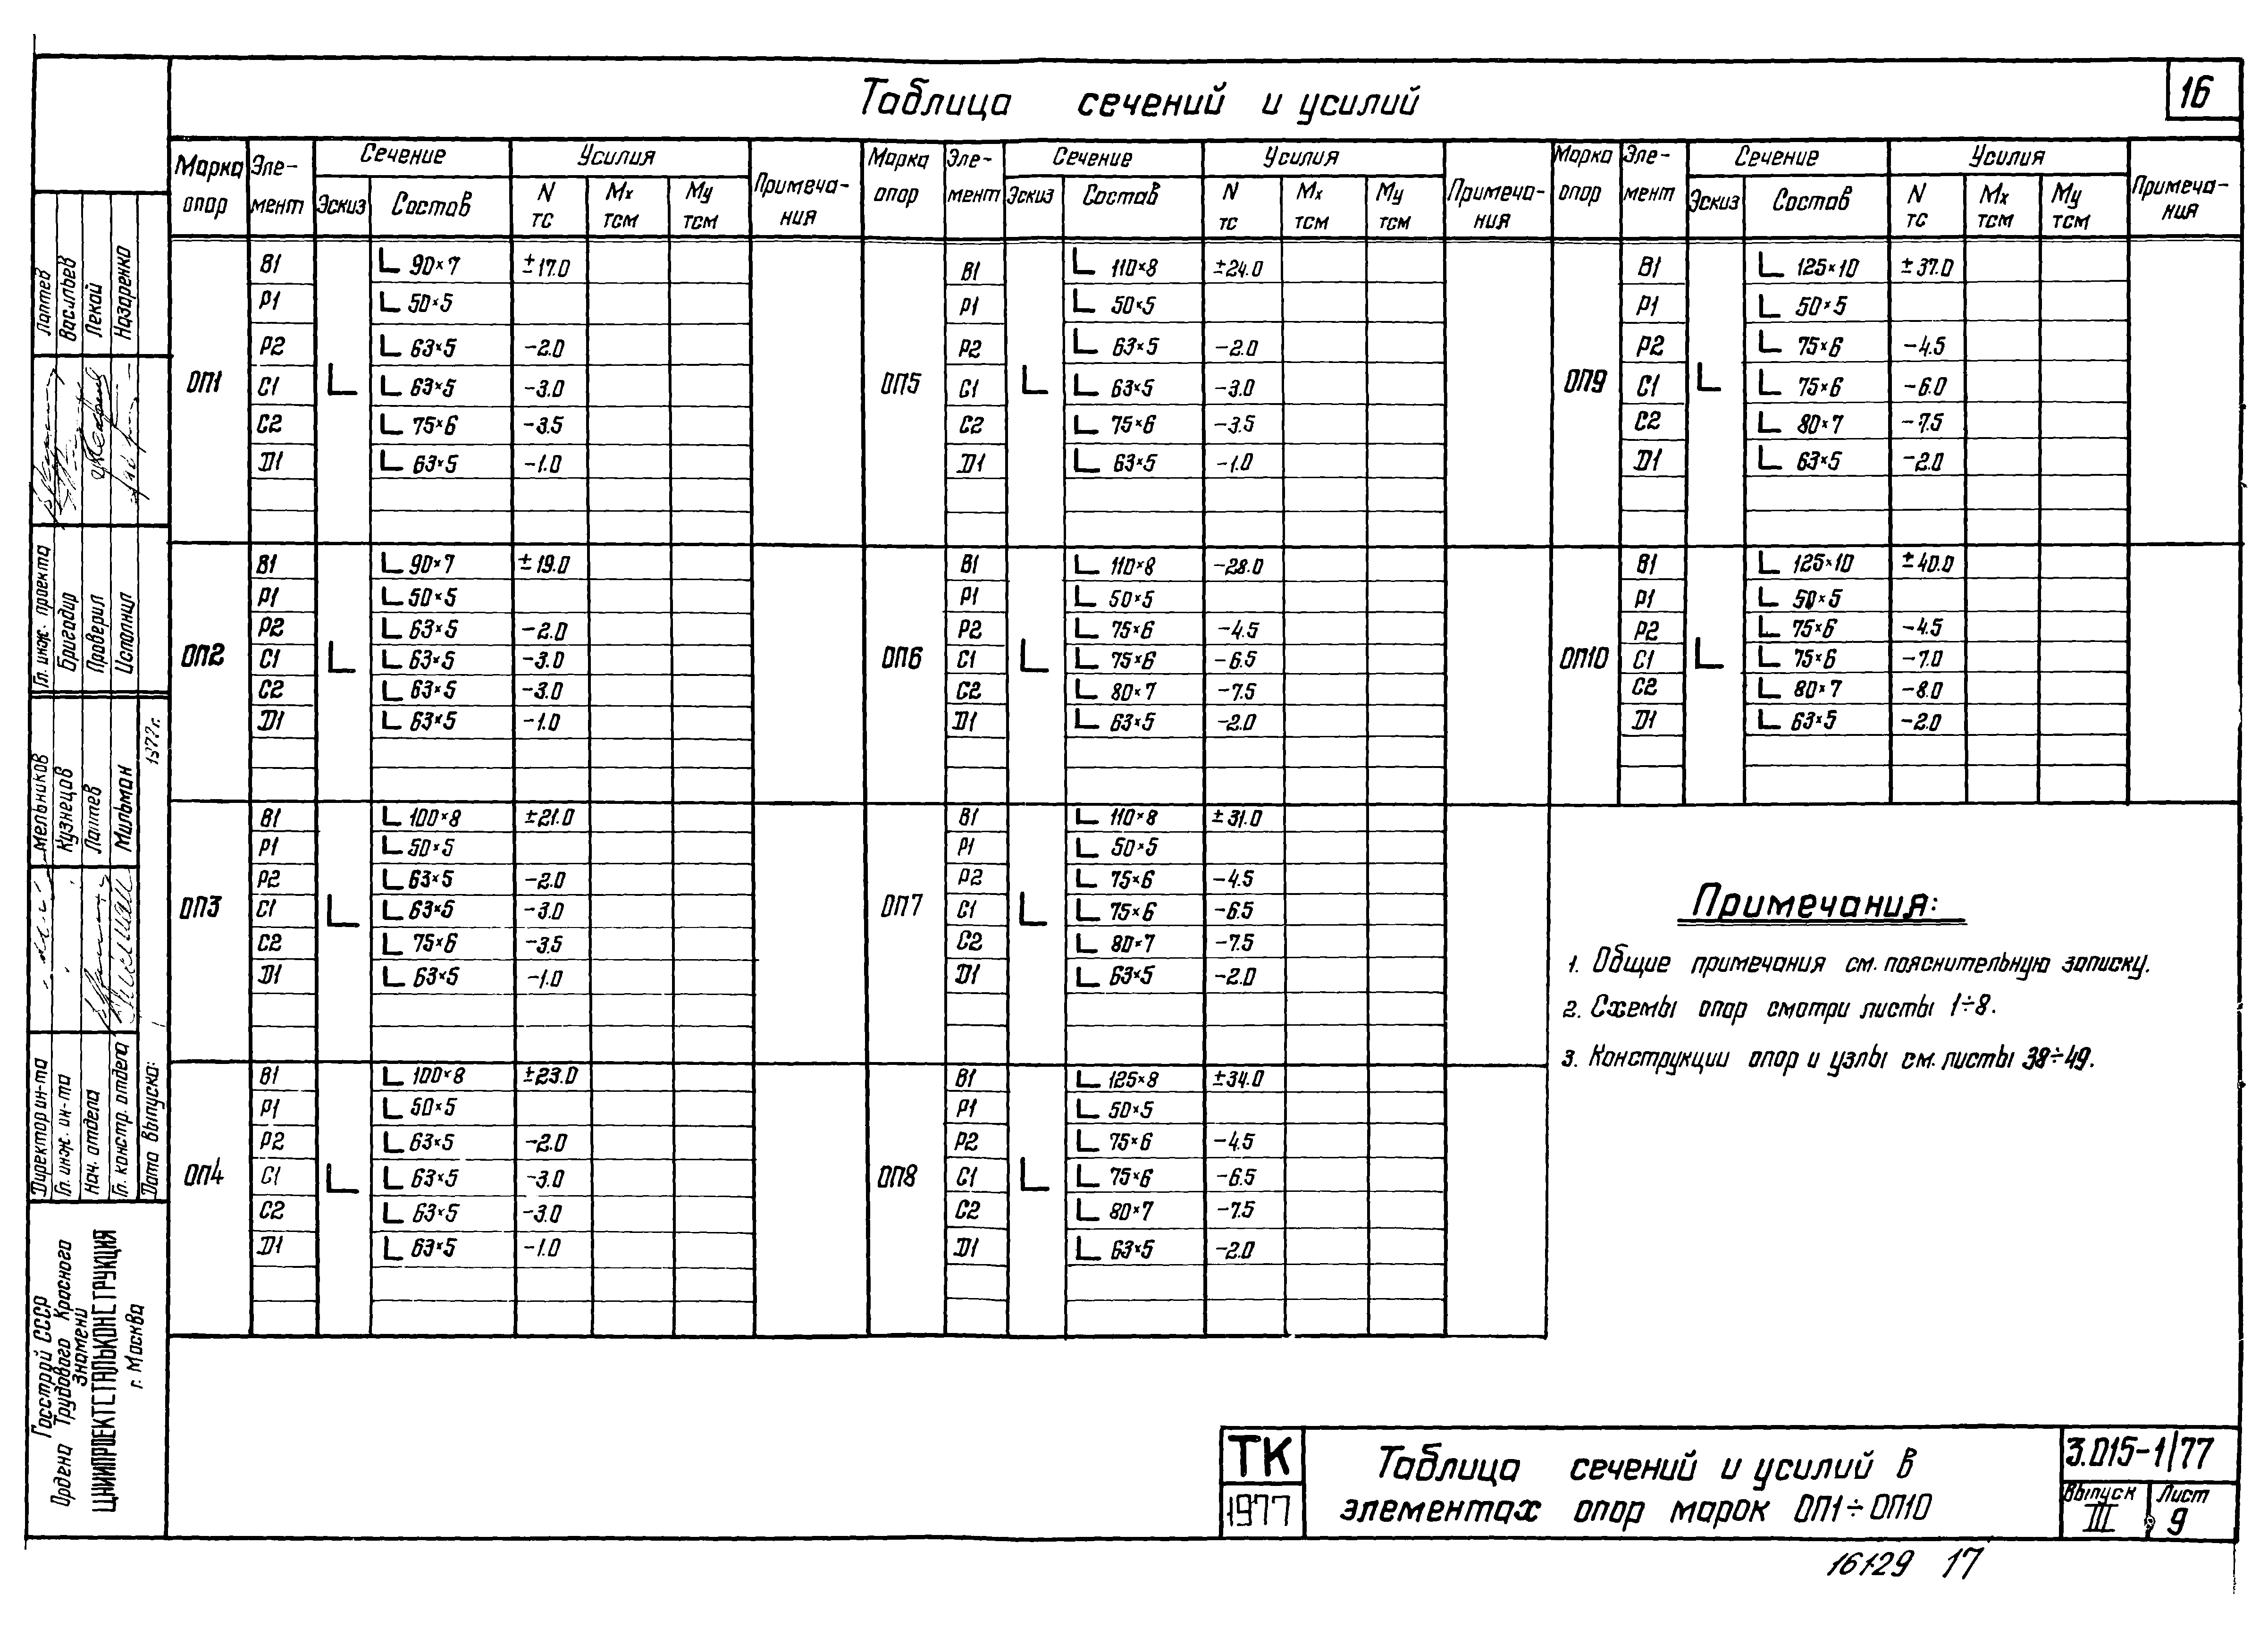 16
Таблица сечений и усилий
Марка опор Эле-мент Сечение Усилия Примеча-ния
Эскиз Состав N тс Mx тсм My тсм
ОП1
В1 L 90×7 ±17.0
Р1 L 50×5
Р2 L 63×5 -2.0
С1 L 63×5 -3.0
С2 L 75×6 -3.5
D1 L 63×5 -1.0
ОП2
В1 L 90×7 ±19.0
Р1 L 50×5
Р2 L 63×5 -2.0
С1 L 63×5 -3.0
С2 L 63×5 -3.0
D1 L 63×5 -1.0
ОП3
В1 L 100×8 ±21.0
Р1 L 50×5
Р2 L 63×5 -2.0
С1 L 63×5 -3.0
С2 L 75×6 -3.5
D1 L 63×5 -1.0
ОП4
В1 L 100×8 ±23.0
Р1 L 50×5
Р2 L 63×5 -2.0
С1 L 63×5 -3.0
С2 L 63×5 -3.0
D1 L 63×5 -1.0
Марка опор Эле-мент Сечение Усилия Примеча-ния
Эскиз Состав N тс Mx тсм My тсм
ОП5
В1 L 110×8 ±24.0
Р1 L 50×5
Р2 L 63×5 -2.0
С1 L 63×5 -3.0
С2 L 75×6 -3.5
D1 L 63×5 -1.0
ОП6
В1 L 110×8 -28.0
Р1 L 50×5
Р2 L 75×6 -4.5
С1 L 75×6 -6.5
С2 L 80×7 -7.5
D1 L 63×5 -2.0
ОП7
В1 L 110×8 ±31.0
Р1 L 50×5
Р2 L 75×6 -4.5
С1 L 75×6 -6.5
С2 L 80×7 -7.5
D1 L 63×5 -2.0
ОП8
В1 L 125×8 ±34.0
Р1 L 50×5
Р2 L 75×6 -4.5
С1 L 75×6 -6.5
С2 L 80×7 -7.5
D1 L 63×5 -2.0
Марка опор Эле-мент Сечение Усилия Примеча-ния
Эскиз Состав N тс Mx тсм My тсм
ОП9
В1 L 125×10 ±37.0
Р1 L 50×5
Р2 L 75×6 -4.5
С1 L 75×6 -6.0
С2 L 80×7 -7.5
D1 L 63×5 -2.0
ОП10
В1 L 125×10 ±40.0
Р1 L 50×5
Р2 L 75×6 -4.5
С1 L 75×6 -7.0
С2 L 80×7 -8.0
D1 L 63×5 -2.0
Примечания:
1. Общие примечания см. пояснительную записку.
2. Схемы опор смотри листы 1÷8.
3. Конструкции опор и узлы см. листы 38÷49.
Гл. инж. проекта Лаптев
Бригадир Васильев
Проверил Лекай
Исполнил Назаренко
Директор ин-та Мельников
Гл. инж. ин-та Кузнецов
Нач. отдела Лаптев
Гл. констр. отдела Мильман
Дата выпуска: 1977г.
Госстрой СССР
Ордена Трудового Красного
Знамени
ЦНИИПРОЕКТСТАЛЬКОНСТРУКЦИЯ
г. Москва
ТК
1977
Таблица сечений и усилий в
элементах опор марок ОП1÷ОП10
3.015-1/77
Выпуск III
Лист 9
16129 17